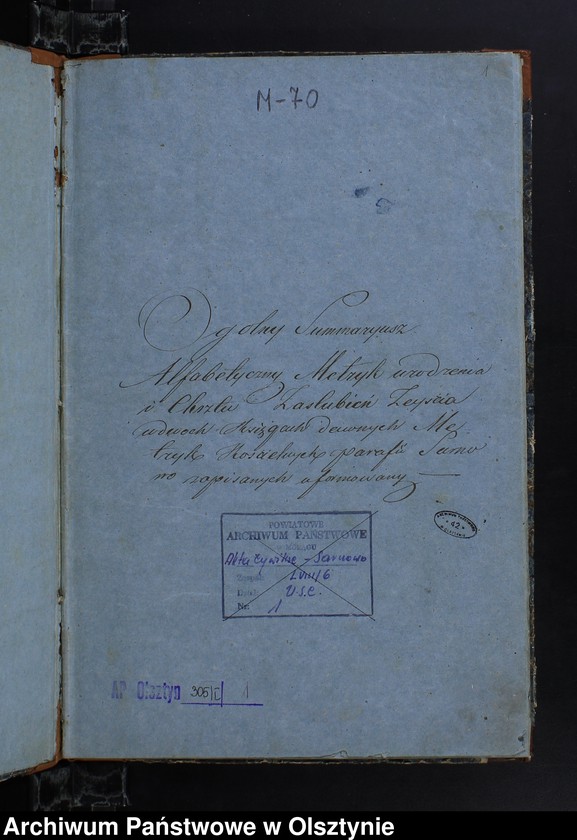 1
M-70
Ogolny Summaryusz
Alfabetyczny Metryk urodzenia
i Chrztu Zaslubień Zeyścia
w dwoch Księgach dawnych Me,
tryk Kościelnych parafii Sarno
wo zapisanych uformowany
POWIATOWE
ARCHIWUM PAŃSTWOWE
Akta Cywilne - Sarnowo
Zespół LVIII/6
Dział U.S.C.
Nr. 1
42
AP Olsztyn 306/I/ 1
Archiwum Państwowe w Olsztynie